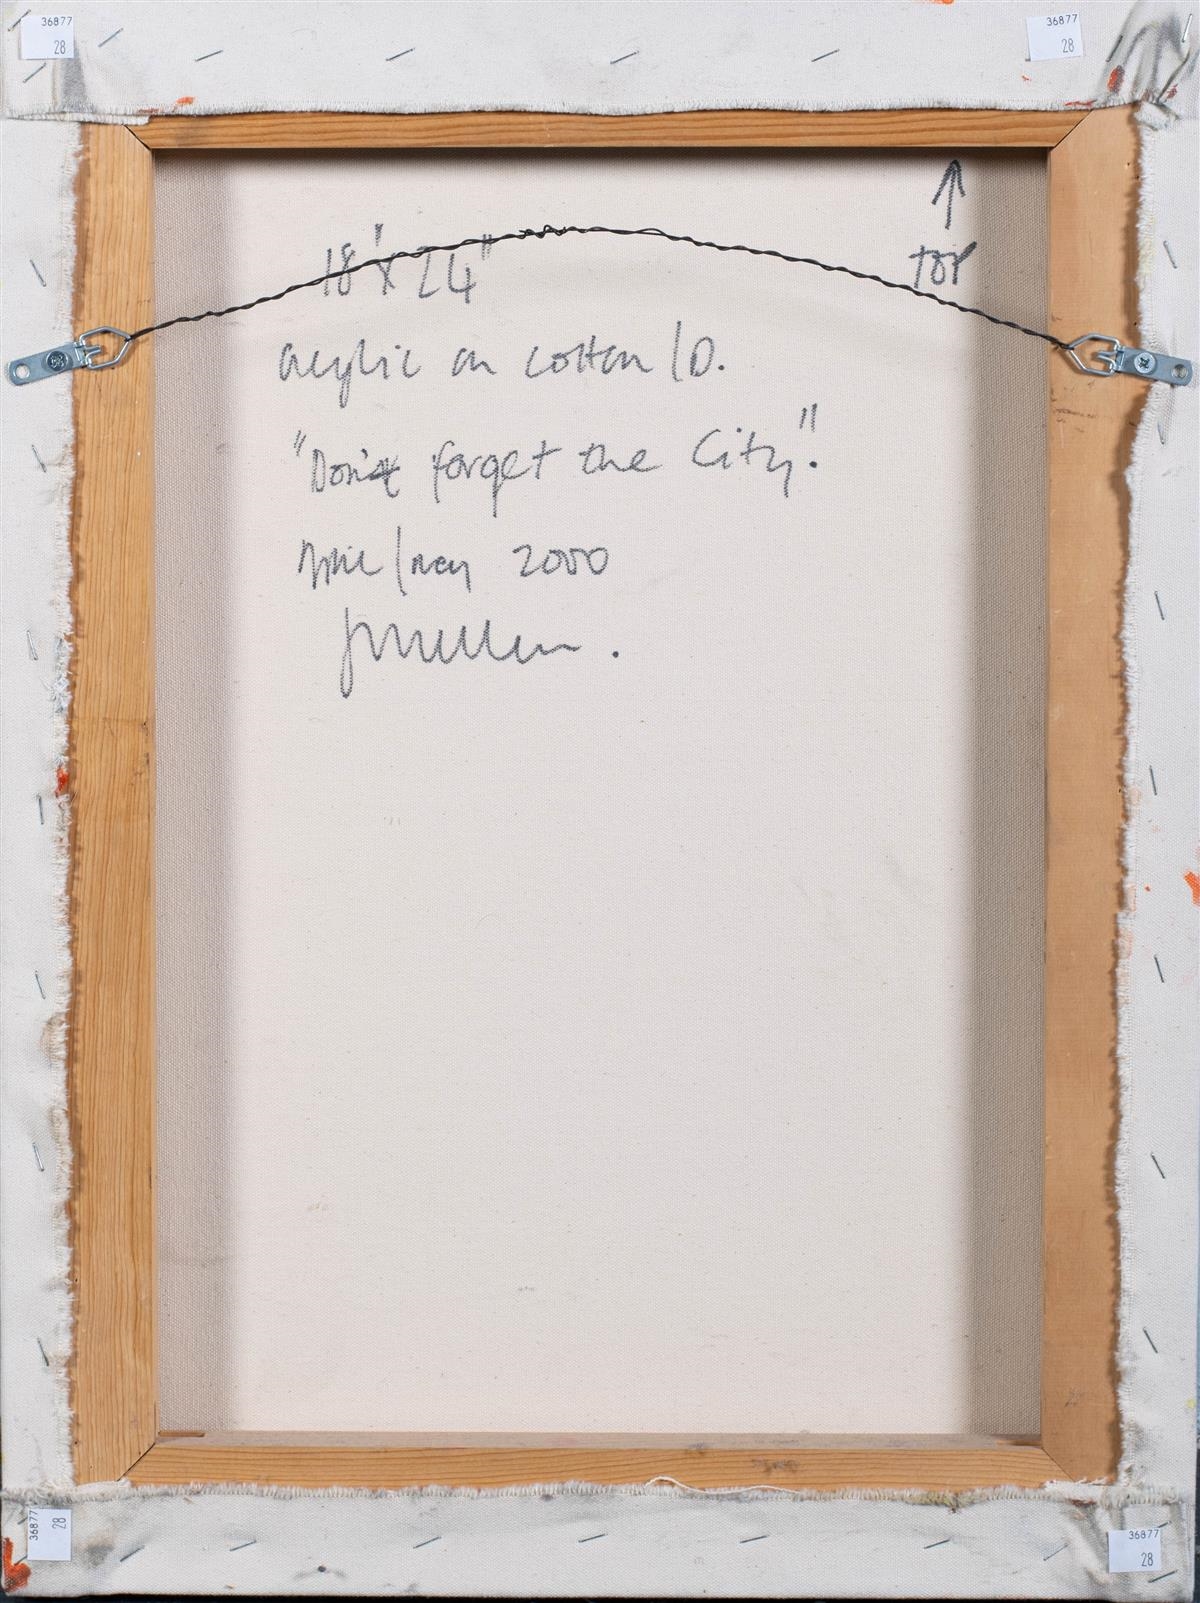 36877
28
36877
28
TOP
18" X 24"
acrylic on cotton /D.
"Don't forget the City."
April/May 2000
36877
28
36877
28